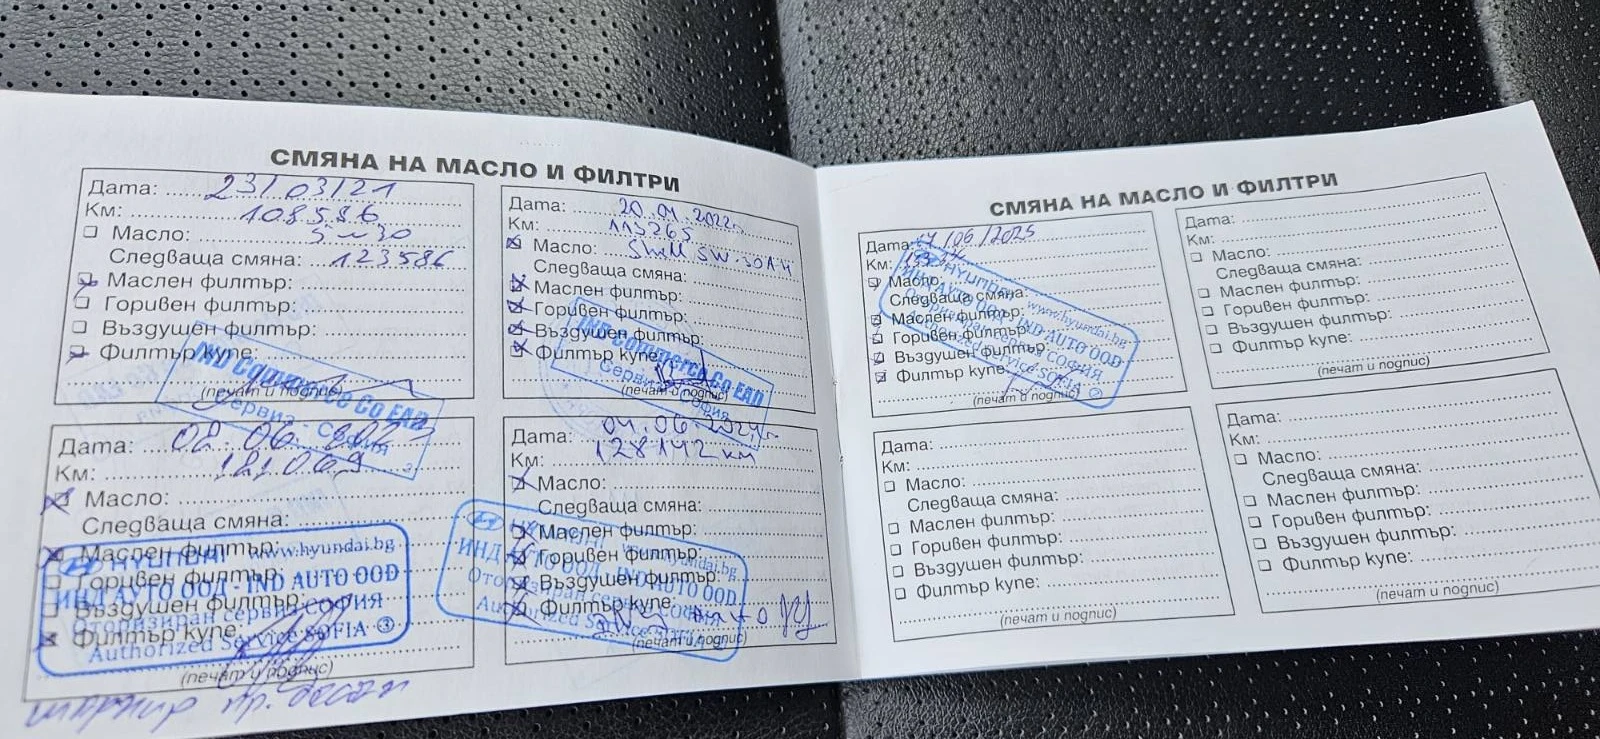 СМЯНА НА МАСЛО И ФИЛТРИ
Дата: 23/03/21
Км: 108586
Масло: 5w30
Следваща смяна: 123586
Маслен филтър:
Горивен филтър:
Въздушен филтър:
Филтър купе:
(печат и подпис)
IND Commerce Co EAD
Сервиз - София
Дата: 20.01.2022г.
Км: 113265
Масло: Shell 5W-30A4
Следваща смяна:
Маслен филтър:
Горивен филтър:
Въздушен филтър:
Филтър купе:
(печат и подпис)
IND Commerce Co EAD
Сервиз - София
Дата: 02.06.
Км: 121.069
Масло:
Следваща смяна:
Маслен филтър:
Горивен филтър:
Въздушен филтър:
Филтър купе:
(печат и подпис)
HYUNDAI www.hyundai.bg
ИНД АУТО ООД - IND AUTO OOD
Оторизиран сервиз СОФИЯ
Authorized Service SOFIA 3
Дата: 04.06.2024г.
Км: 128142 км
Масло:
Следваща смяна:
Маслен филтър:
Горивен филтър:
Въздушен филтър:
Филтър купе:
(печат и подпис)
www.hyundai.bg
ИНД АУТО ООД - IND AUTO OOD
Оторизиран сервиз СОФИЯ
Authorized Service
СМЯНА НА МАСЛО И ФИЛТРИ
Дата: /06/2025
Км:
Масло:
Следваща смяна:
Маслен филтър:
Горивен филтър:
Въздушен филтър:
Филтър купе:
(печат и подпис)
HYUNDAI www.hyundai.bg
ИНД АУТО ООД - IND AUTO OOD
Оторизиран сервиз СОФИЯ
Authorized Service SOFIA
Дата:
Км:
Масло:
Следваща смяна:
Маслен филтър:
Горивен филтър:
Въздушен филтър:
Филтър купе:
(печат и подпис)
Дата:
Км:
Масло:
Следваща смяна:
Маслен филтър:
Горивен филтър:
Въздушен филтър:
Филтър купе:
(печат и подпис)
Дата:
Км:
Масло:
Следваща смяна:
Маслен филтър:
Горивен филтър:
Въздушен филтър:
Филтър купе:
(печат и подпис)